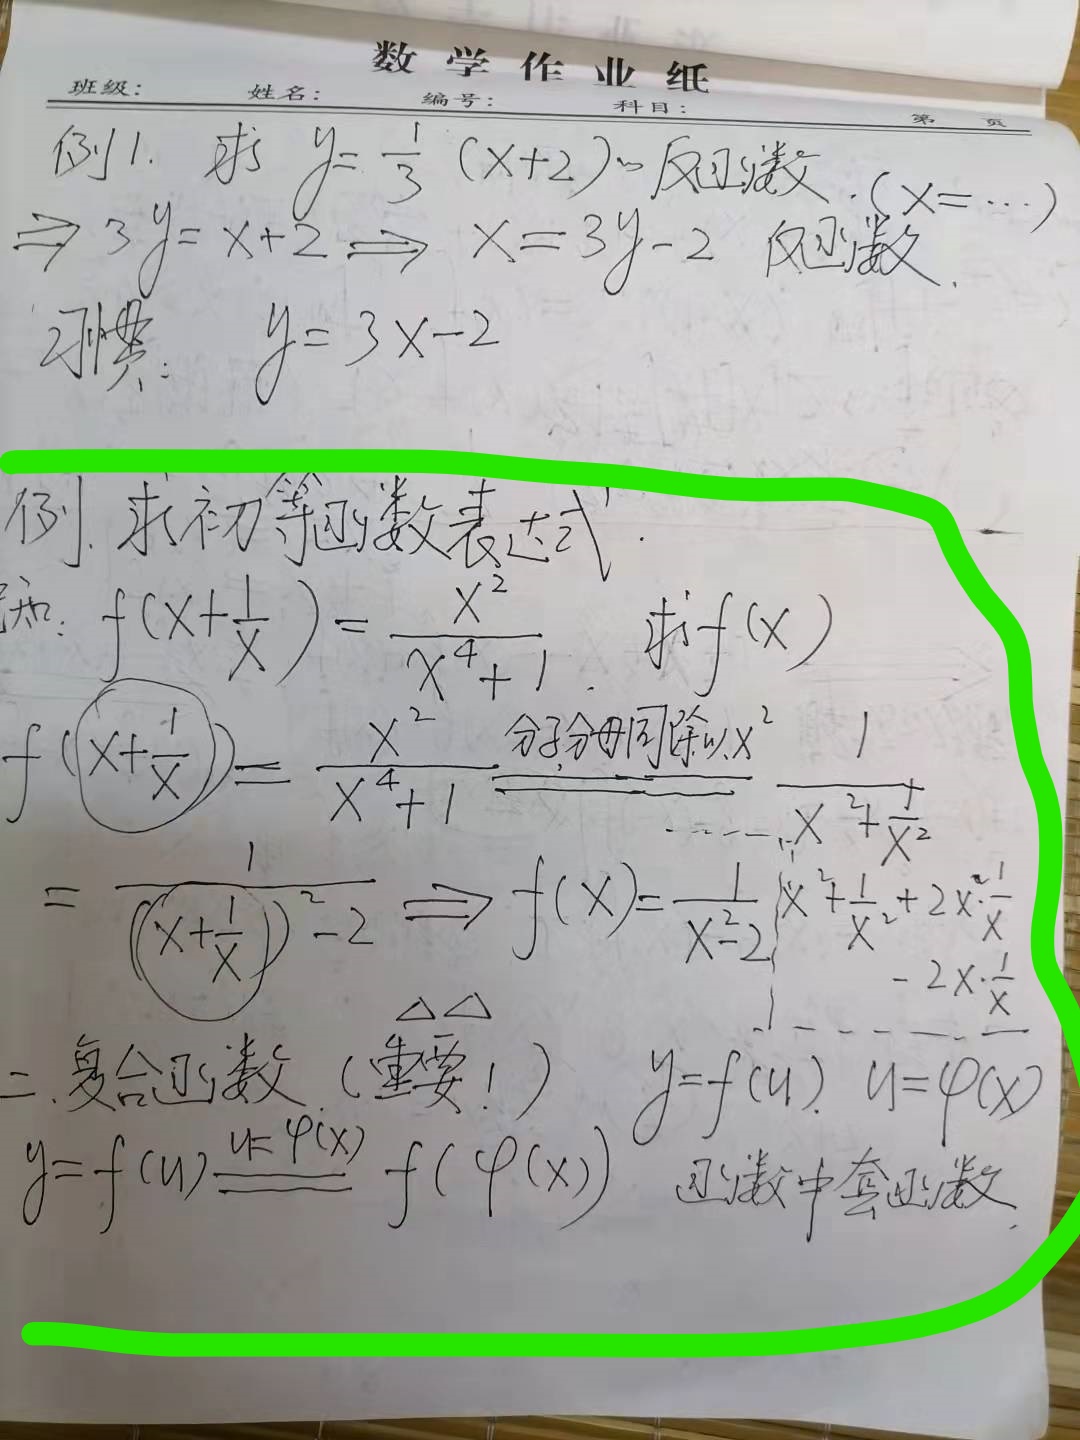 数学作业纸
班级: 姓名: 编号: 科目: 第 页
例1. 求 y=1/3 (x+2)~反函数.(x=…)
⇒3y=x+2⇒ x=3y-2 反函数.
习惯: y=3x-2
例.求初等函数表达式.
知: f(x+1/x)=x²/(x⁴+1). 求f(x)
f(x+1/x)=x²/(x⁴+1) 分子分母同除以x² 1/(x²+1/x²)
=1/((x+1/x)²-2) ⇒f(x)=1/(x²-2) x²+1/x²+2x·1/x
-2x·1/x
△△
二.复合函数.(重要!) y=f(u). u=φ(x)
y=f(u) u=φ(x) f(φ(x)) 函数中套函数.